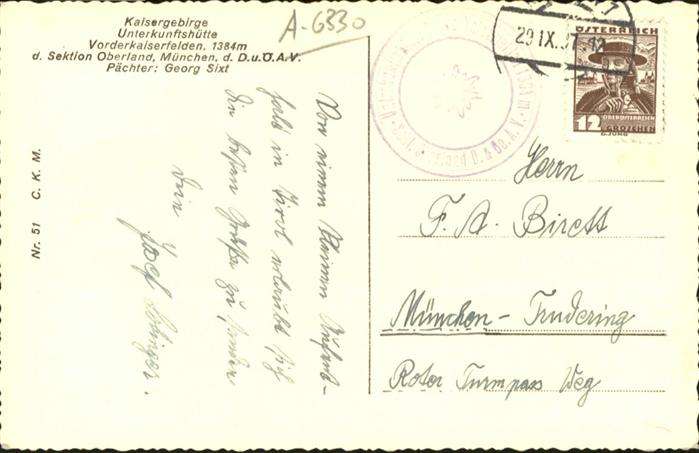 Kaisergebirge
Unterkunftshütte
Vorderkaiserfelden, 1384m
d. Sektion Oberland, München, d. D.u.Ö.A.V.
Pächter: Georg Sixt
A-6330
29.IX.37.12
ÖSTERREICH
12
OBERÖSTERREICH
GROSCHEN
Nr. 51 C. K. M.
Von einem kleinen Aufent-
halt in Tirol erlaubt sich
die besten Grüße zu senden
Dein
Josef
Herrn
F. A. Birett
München - Trudering
Roter Turmpass Weg